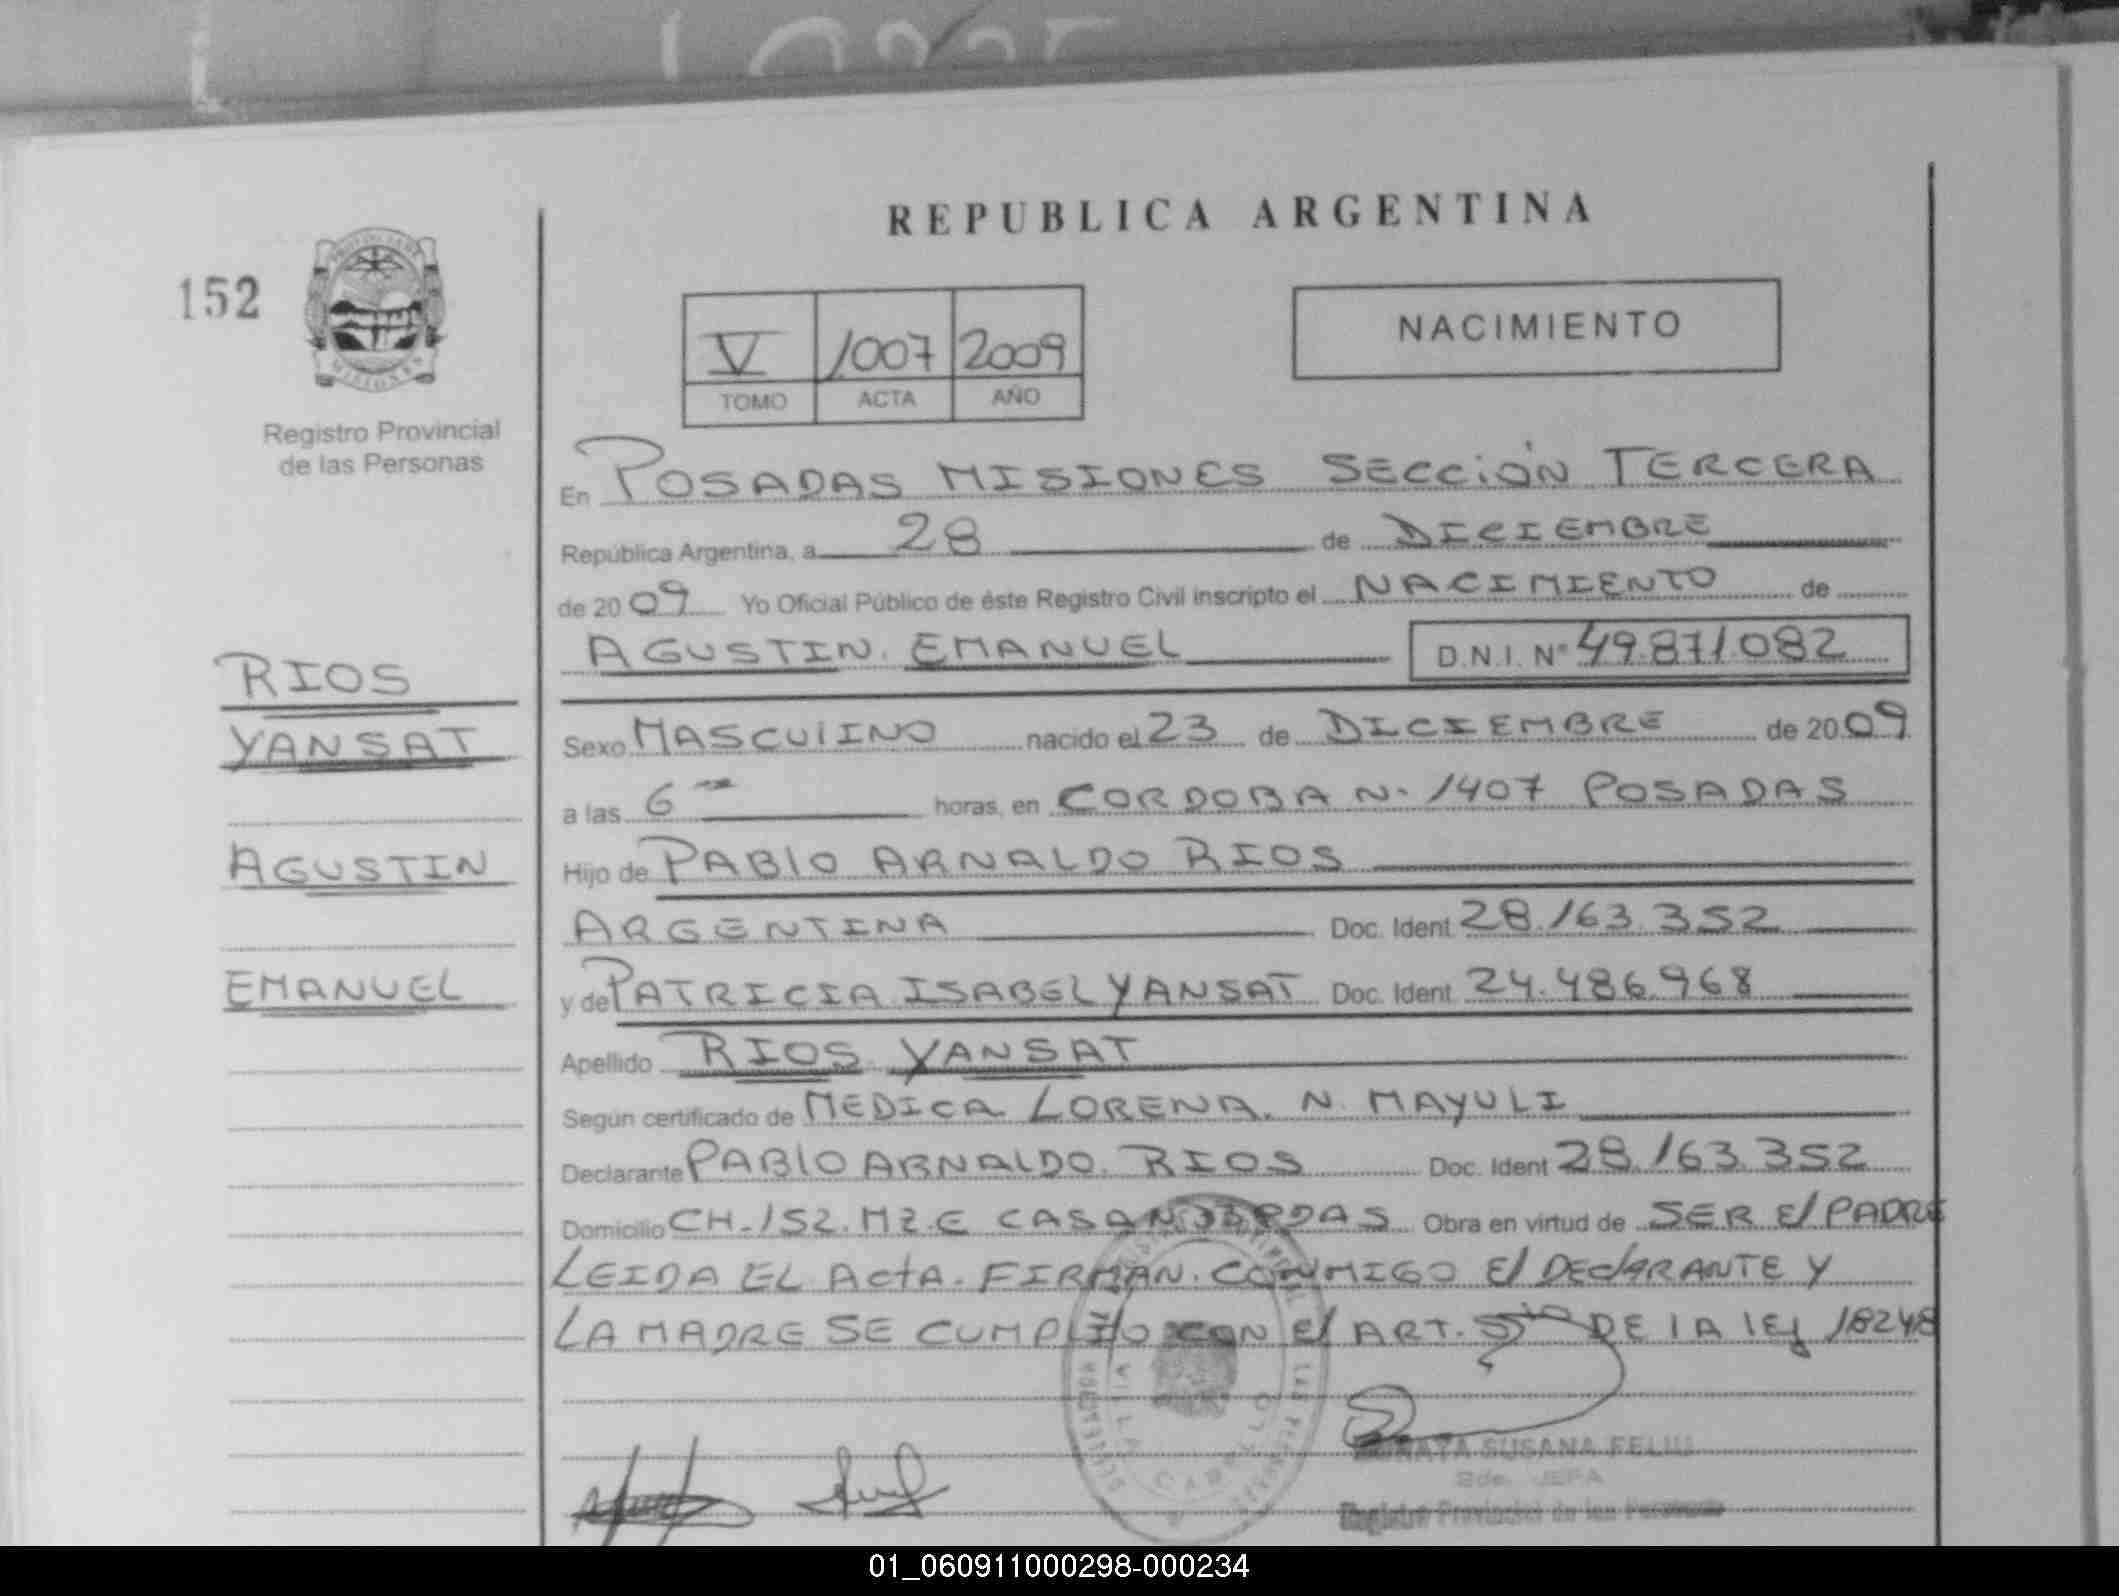 REPUBLICA ARGENTINA
152
NACIMIENTO
V 1007 2009
TOMO ACTA AÑO
MISIONES
Registro Provincial
de las Personas
En POSADAS MISIONES SECCIÓN TERCERA
República Argentina, a 28 de DICIEMBRE
de 2009 Yo Oficial Público de éste Registro Civil inscripto el NACIMIENTO de
AGUSTIN. EMANUEL D.N.I. Nº 49.871.082
RIOS
YANSAT
AGUSTIN
EMANUEL
Sexo MASCUlINO nacido el 23 de DICIEMBRE de 2009
a las 6 horas, en CORDOBA N. 1407 POSADAS
Hijo de PABlO ARNALDO RIOS
ARGENTINA Doc. Ident 28.163.352
y de PATRICIA ISABEL YANSAT Doc. Ident 24.486.968
Apellido RIOS YANSAT
Según certificado de MEDICA LORENA. N. MAYULI
Declarante PABlO ARNALDO. RIOS Doc. Ident 28.163.352
Domicilio CH-152.MZ.E CASA Obra en virtud de SER El PADRE
LEIDA EL ActA. FIRMAN. CONMIGO El DEClARANTE Y
LA MADRE SE CUMPLIO CON El ART. 5to DE lA lEy 18248
VILLA CABELLO
SUSANA FELIU
Sde. JEFA
Registro Provincial de las Personas
01_060911000298-000234